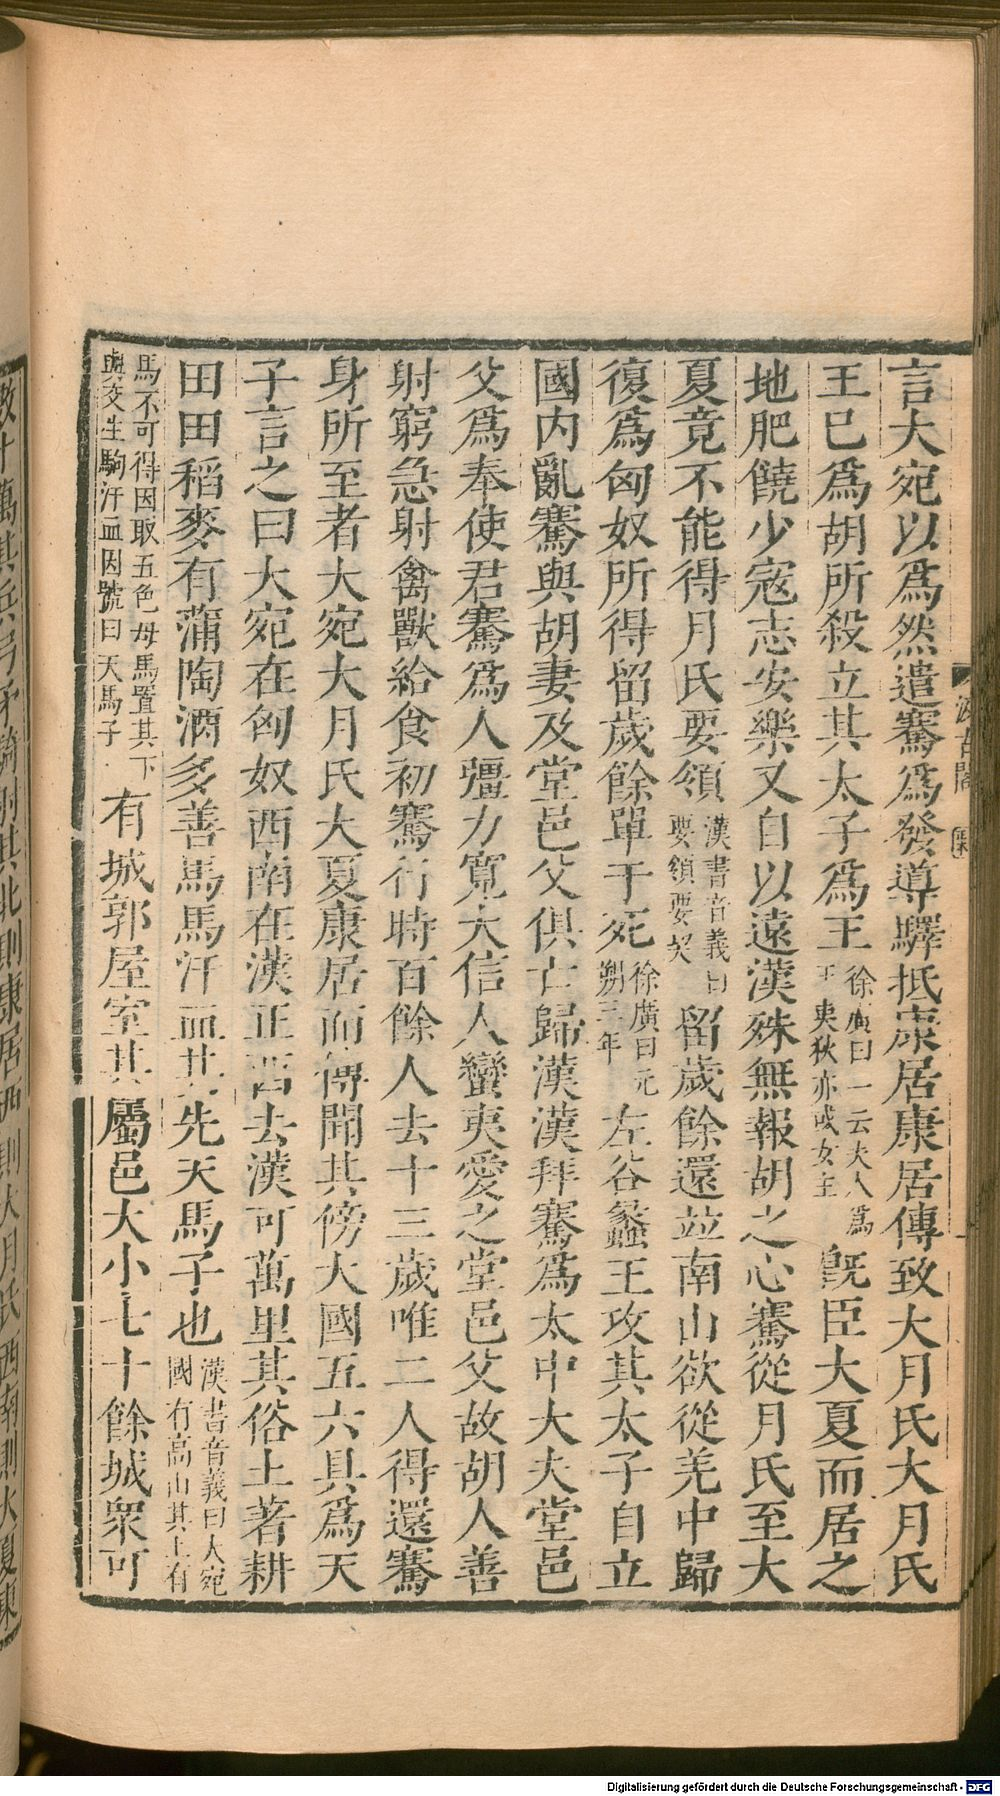 言大宛以爲然遣騫爲發導驛抵康居康居傳致大月氏大月氏
王已爲胡所殺立其太子爲王徐廣曰一云夫人爲王夷狄亦或女主既臣大夏而居之
地肥饒少寇志安樂又自以遠漢殊無報胡之心騫從月氏至大
夏竟不能得月氏要領漢書音義曰要領要契留歲餘還並南山欲從羌中歸
復爲匈奴所得留歲餘單于死徐廣曰元朔三年左谷蠡王攻其太子自立
國内亂騫與胡妻及堂邑父俱亡歸漢漢拜騫爲太中大夫堂邑
父爲奉使君騫爲人彊力寬大信人蠻夷愛之堂邑父故胡人善
射窮急射禽獸給食初騫行時百餘人去十三歲唯二人得還騫
身所至者大宛大月氏大夏康居而傳聞其傍大國五六具爲天
子言之曰大宛在匈奴西南在漢正西去漢可萬里其俗土著耕
田田稻麥有蒲陶酒多善馬馬汗血其先天馬子也漢書音義曰大宛國有高山其上有
馬不可得因取五色母馬置其下與交生駒汗血因號曰天馬子有城郭屋室其屬邑大小七十餘城衆可
汲古閣
萬其兵弓矛騎射其北則康居西則大月氏西南則大夏東
Digitalisierung gefördert durch die Deutsche Forschungsgemeinschaft - DFG